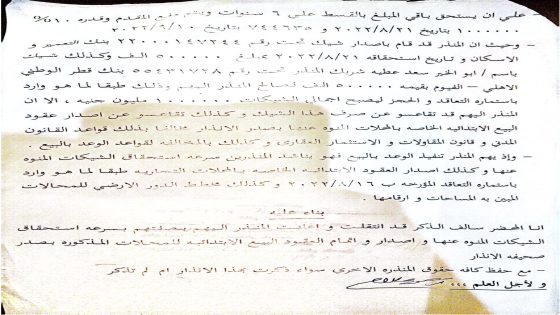 - علي ان يستحق باقي المبلغ بالقسط علي ٦ سنوات ويتم دفع المقدم وقدره ١٠%
١٠٠٠٠٠٠ بتاريخ ٢٠٢٢/٨/٢١ و ٧٤٤٦٣٥ بتاريخ ٢٠٢٢/٩/١٠
- وحيث ان المنذر قد قام باصدار شيك تحت رقم ٢٢٠٠٠١٤٧٢٤٤ بنك التعمير و
الاسكان و تاريخ استحقاقه ٢٠٢٢/٨/٢١ بمبلغ ٥٠٠٠٠٠ الف وكذلك شيك
باسم / ابو الخير سعد عطيه شريك المنذر تحت رقم ٥٥٤٣١٧٢٨ بنك قطر الوطني
الاهلي - الفيوم بقيمه ٥٠٠٠٠٠ الف لصالح المنذر اليهم وذلك طبقا لما هو وارد
باستماره التعاقد و الحجز ليصبح اجمالي الشيكات ١٠٠٠٠٠٠ مليون جنيه ، الا ان
المنذر اليهم قد تقاعسو عن صرف هذا الشيك و كذلك تقاعسو عن اصدار عقود
البيع الابتدائيه الخاصه بالمحلات المنوه عنها بصدر الانذار مخالفا بذلك قواعد القانون
المدني و قانون المقاولات و الاستثمار العقاري و كذلك بالمخالفه لقواعد الوعد بالبيع .
- وإذ يهم المنذر تنفيذ الوعد بالبيع فهو يناشد المنذرين سرعه استحقاق الشيكات المنوه
عنها و كذلك اصدار العقود الابتدائيه الخاصه بالمحلات التجاريه طبقا لما هو وارد
باستماره التعاقد المؤرخه ب ٢٠٢٢/٨/١٦ و كذلك مخطط الدور الارضي للمحالات
المبين به المساحات و ارقامها .
بناء عليه
انا المحضر سالف الذكر قد انتقلت و اعلنت المنذر اليهم بصفتهم بسرعه استحقاق
الشيكات المنوه عنها و اصدار و اتمام العقود البيع الابتدائيه للمحلات المذكوره بصدر
صحيفه الانذار
- مع حفظ كافه حقوق المنذره الاخرى سواء ذكرت بهذا الانذار ام لم تذكر
و لأجل العلم ,,,